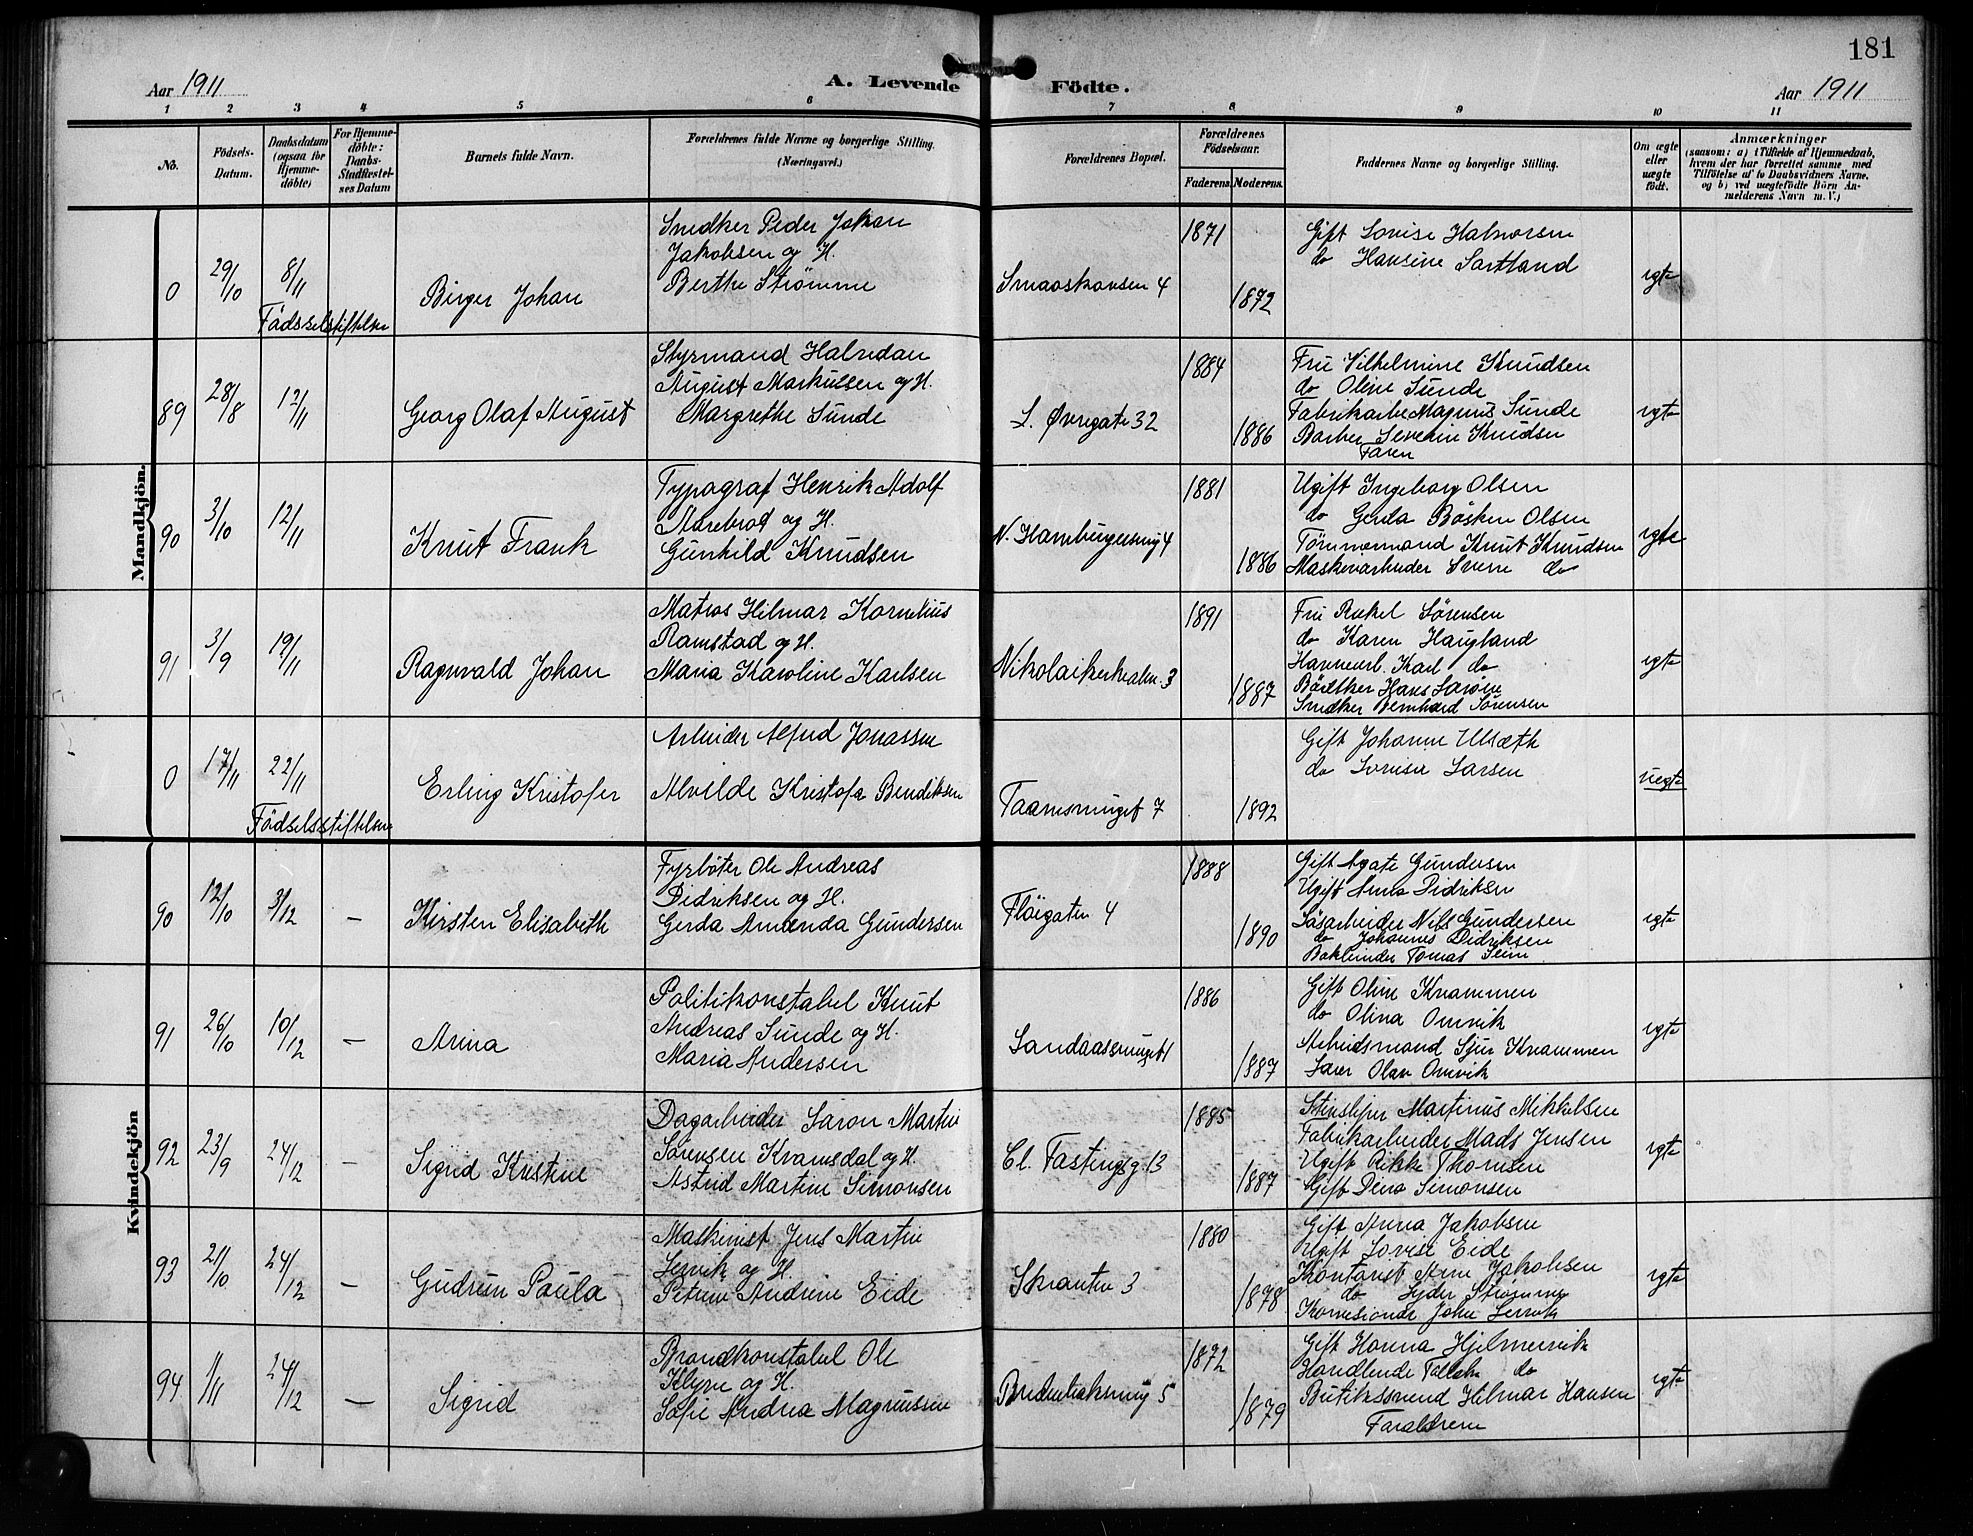 181
Aar 1911
A. Levende
Födte.
Aar 1911
1 2 3 4 5 6 7 8 9 10 11
No.
Födsels-
Datum.
Daabsdatum
(ogsaa for
Hjemme-
döbte)
For Hjemme-
döbte:
Daabs-
Stadfæstel-
ses Datum
Barnets fulde Navn.
Forældrenes fulde Navne og borgerlige Stilling.
(Næringsvei.)
Forældrenes Bopæl.
Forældrenes
Födselsaar.
Faderens.
Moderens.
Faddernes Navne og borgerlige Stilling.
Om ægte
eller
uægte
født.
Anmærkninger
(saasom: a) i Tilfælde af Hjemmedaab,
hvem der har forrettet samme, med
Tilföielse af to Daabsvidners Navne,
og b) ved uægtefödte Börn An-
melderens Navn m. V.)
Mandkjön.
0
29/10
8/11
Födselsstiftelsen
Birger Johan
Snedker Peder Johan
Jakobsen og H.
Berthe Strømme
Smaaskansen 4
1871
1872
Gift Lovise Halvorsen
do Hansine Sartland
egte
89
28/8
12/11
Georg Olaf August
Styrmand Halvdan
August Markussen og H.
Margrethe Sunde
L. Øvregate 32
1884
1886
Fru Vilhelmine Knudsen
do Oline Sunde
Fabrikarbe Magnus Sunde
Barber Severin Knudsen
Faren
egte
90
3/10
12/11
Knut Frank
Typograf Henrik Adolf
Aarebrot og H.
Gunhild Knudsen
N. Hamburgersmug 4
1881
1886
Ugift Ingeborg Olsen
do Gerda Bösken Olsen
Tömmermand Knut Knudsen
Maskinarbeider Sverre do
egte
91
3/9
19/11
Ragnvald Johan
Matros Hilmar Kornelius
Ramstad og H.
Maria Karoline Karlsen
Nikolaikirkealm. 3
1891
1887
Fru Rakel Sörensen
do Karen Haugland
Havnearb. Karl do
Bödker Hans Larsen
Snedker Bernhard Sörensen
egte
0
17/11
22/11
Födselsstiftelsen
Erling Kristofer
Arbeider Alfred Jonassen
Alvilde Kristofa Bendiksen
Taarnsmuget 7
1892
Gift Johanne Ulsæth
do Lovise Larsen
uegte
Kvindekjön
90
12/10
3/12
—
Kirsten Elisabeth
Fyrböter Ole Andreas
Didriksen og H.
Gerda Amanda Gundersen
Flöigaten 4
1888
1890
Gift Agate Gundersen
Ugift Anna Didriksen
Lösarbeider Nils Gundersen
do Johannes Didriksen
Bokbinder Tomas Seim
egte
91
26/10
10/12
—
Anna
Politikonstabel Knut
Andreas Sunde og H.
Maria Andersen
Sandaassmuget 1
1886
1887
Gift Oline Knammen
do Olina Omvik
Arbeidsmand Sjur Knammen
Larer Olav Omvik
egte
92
23/9
24/12
—
Sigrid Kristine
Dagarbeider Saron Martin
Sörensen Kvamsdal og H.
Astrid Martine Simonsen
Cl. Fastingsg. 13
1885
1887
Stensliper Martinus Mikkelsen
Fabrikarbeider Mads Jensen
Ugift Rikke Thomsen
Gift Dina Simonsen
egte
93
21/10
24/12
—
Gudrun Paula
Maskinist Jens Martin
Lervik og H.
Petrine Andrine Eide
Skranten 3
1880
1878
Gift Anna Jakobsen
Ugift Lovise Eide
Kontorist Arne Jakobsen
do Lyder Strömme
Komisionær John Lervik
egte
94
1/11
24/12
—
Sigrid
Brandkonstabel Ole
Klyve og H.
Sofie Andrea Magnussen
5
1872
1879
Gift Hanna Hjelmervik
Handlende do
Butikssvend Hilmar Hansen
Foraldrene
egte